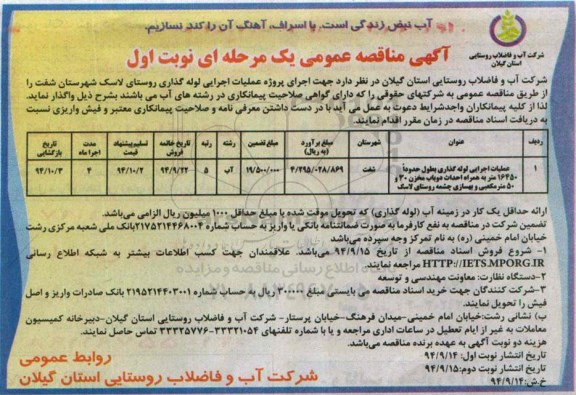 آب نبض زندگی است، با اسراف، آهنگ آن را کند نسازیم.
شرکت آب و فاضلاب روستایی
استان گیلان
آگهی مناقصه عمومی یک مرحله ای نوبت اول
شرکت آب و فاضلاب روستایی استان گیلان در نظر دارد جهت اجرای پروژه عملیات اجرایی لوله گذاری روستای لاسک شهرستان شفت را
از طریق مناقصه عمومی به شرکتهای حقوقی را که دارای گواهی صلاحیت پیمانکاری در رشته های آب می باشند بشرح ذیل واگذار نماید.
لذا از کلیه پیمانکاران واجدشرایط دعوت به عمل می آید با در دست داشتن معرفی نامه و صلاحیت پیمانکاری معتبر و فیش واریزی نسبت
به دریافت اسناد مناقصه در زمان مقرر اقدام نمایند.
ردیف عنوان شهرستان مبلغ برآورد (به ریال) مبلغ تضمین رشته رتبه تاریخ خاتمه فروش تسلیم پیشنهاد قیمت مدت اجرا ماه تاریخ بازگشایی
۱ عملیات اجرایی لوله گذاری بطول حدوداً ۱۶۴۵۰ متر به همراه احداث دوباب مخزن ۳۰ و ۵۰ مترمکعبی و بهسازی چشمه روستای لاسک شفت ۴/۲۹۵/۰۲۸/۸۶۹ ۱۹/۵۰۰/۰۰۰ آب ۵ ۹۴/۹/۲۲ ۹۴/۱۰/۲ ۴ ۹۴/۱۰/۳
ارائه حداقل یک کار در زمینه آب (لوله گذاری) که تحویل موقت شده با مبلغ حداقل ۱۰۰۰ میلیون ریال الزامی می‌باشد.
تضمین شرکت در مناقصه به نفع کارفرما به صورت ضمانتنامه بانکی یا واریز به حساب شماره ۲۱۷۵۲۱۴۴۶۸۰۰۴ بانک ملی شعبه مرکزی رشت
خیابان امام خمینی (ره) به نام تمرکز وجه سپرده می‌باشد
۱- شروع فروش اسناد مناقصه از تاریخ ۹۴/۹/۱۵ می‌باشد. علاقمندان جهت کسب اطلاعات بیشتر به شبکه اطلاع رسانی
HTTP://IETS.MPORG.IR مراجعه نمایند.
۲-دستگاه نظارت: معاونت مهندسی و توسعه
۳-شرکت کنندگان جهت خرید اسناد مناقصه می بایستی مبلغ ۳۰۰۰۰۰ ریال به حساب شماره ۲۱۹۵۲۱۴۴۰۳۰۰۱ بانک صادرات واریز و اصل
فیش را تحویل نمایند.
ب) نشانی رشت: خیابان امام خمینی-میدان فرهنگ-خیابان پرستار- شرکت آب و فاضلاب روستایی استان گیلان-دبیرخانه کمیسیون
معاملات به غیر از ایام تعطیل در ساعات اداری مراجعه و یا با شماره تلفنهای ۳۳۳۲۱۰۵۴-۳۳۳۲۵۷۷۶ تماس حاصل نمایند.
هزینه دو نوبت آگهی به عهده برنده مناقصه می‌باشد.
تاریخ انتشار نوبت اول: ۹۴/۹/۱۴
تاریخ انتشار نوبت دوم: ۹۴/۹/۱۵
خ.ش: ۹۴/۹/۱۴
روابط عمومی
شرکت آب و فاضلاب روستایی استان گیلان